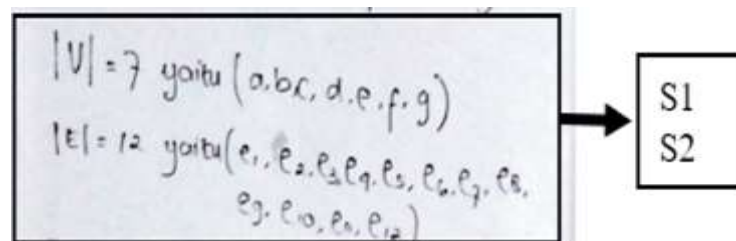 |V| = 7 yaitu (a, b, c, d, e, f, g)
|E| = 12 yaitu (e₁, e₂, e₃, e₄, e₅, e₆, e₇, e₈,
e₉, e₁₀, e₁₁, e₁₂)
S1
S2